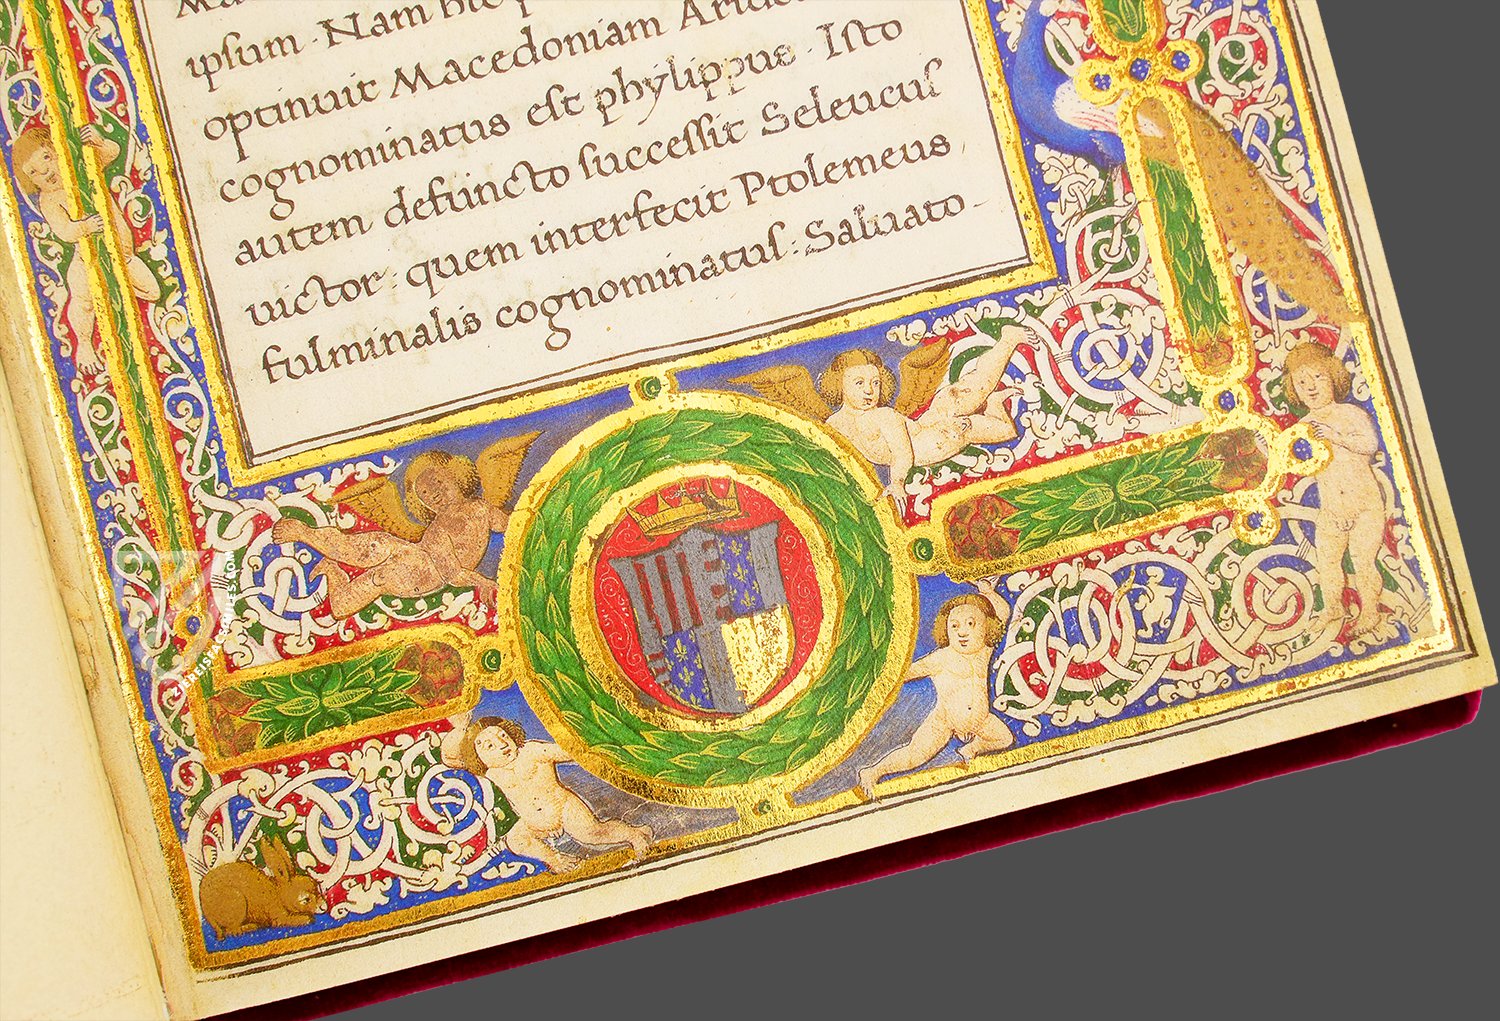 ipsum · Nam hic
optinuit Macedoniam
cognominatus est phylippus · Isto
autem defuncto successit Seleucus
victor · quem interfecit Ptolemeus ·
fulminalis cognominatus : Saluato-
ZIERESFACSIMILES.COM